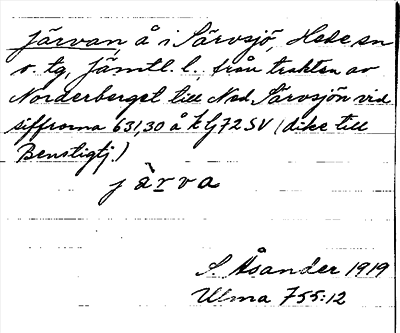 Järvan, å i Särvsjö, Hede sn
o. tg, Jämtl. l. från trakten av
Norderberget till Ned. Särvsjön vid
siffrorna 631,30 å tg 72 SV (dike till
Benstigtj.)
järva
S. Åsander 1919
Ulma 755:12